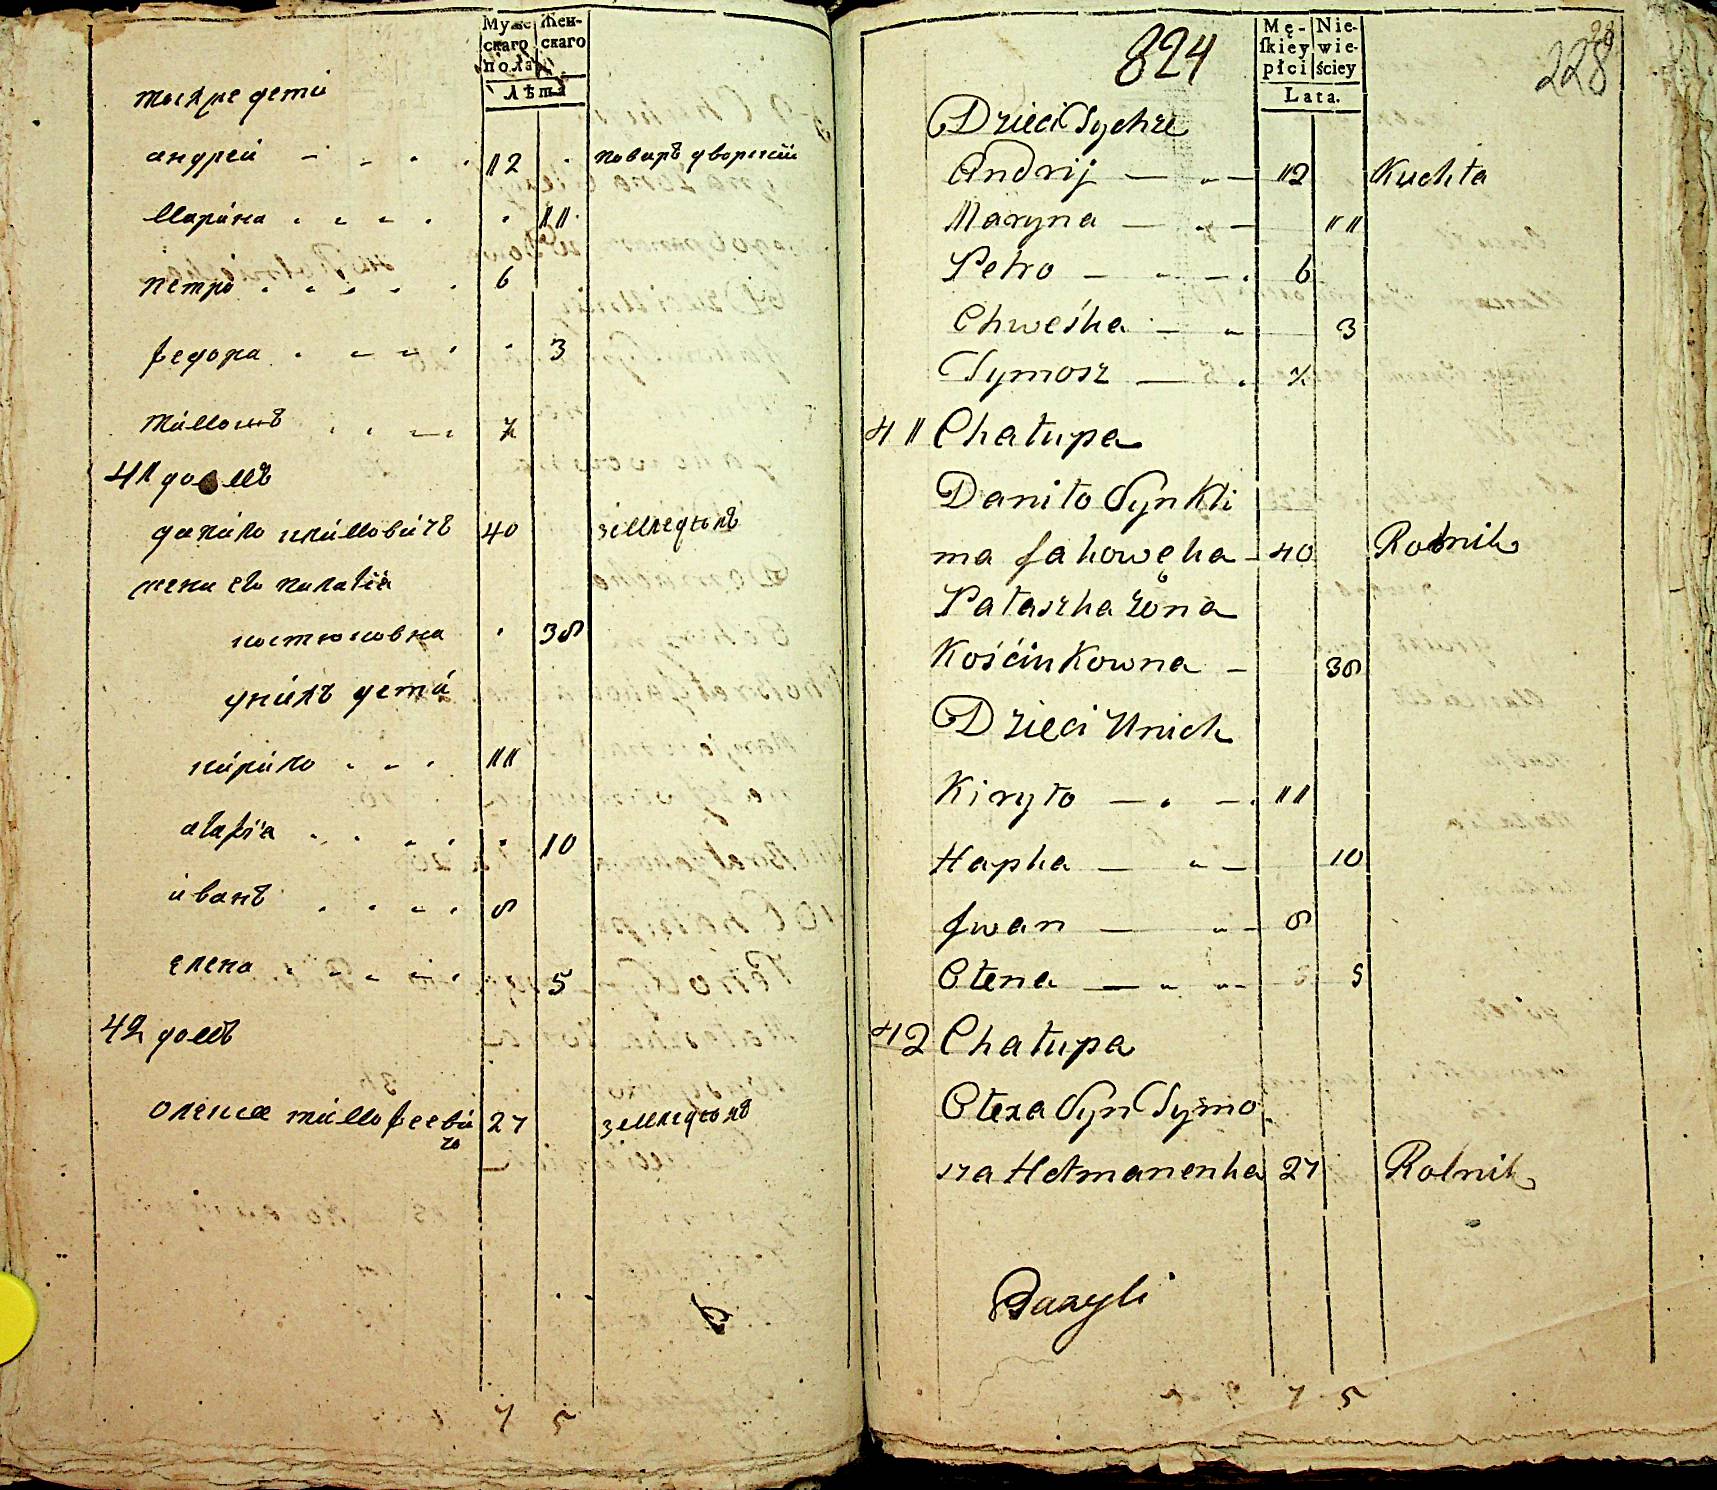 Мужескаго пола
Женскаго
Лѣта
тыхже дети
андрей 12 поваръ дворскій
Марина 11
петро 6
федора 3
тимошъ ½
41 домъ
данило климовичъ 40 земледѣлъ
жена его палагія
костюковна 38
у нихъ дети
кирило 11
агафія 10
иванъ 8
елена 5
42 домъ
олекса тимофееви
чъ 27 земледѣлъ
7 5
824
228
Męſkiey płci
Niewieściey
Lata.
Dzieci Tychże
Andrij 12 Kuchta
Maryna 11
Petro 6
Chweśka 3
Tymosz ½
41 Chałupa
Daniło Syn Kli
ma Jakowęka 40 Rolnik
Pałaszka żona
Kościukowna 38
Dzieci Unich
Kiryło 11
Hapka 10
Jwan 8
Ołena 5
42 Chałupa
Ołexa Syn Tymo
sza Hetmanenka 27 Rolnik
Bazyli
7 5